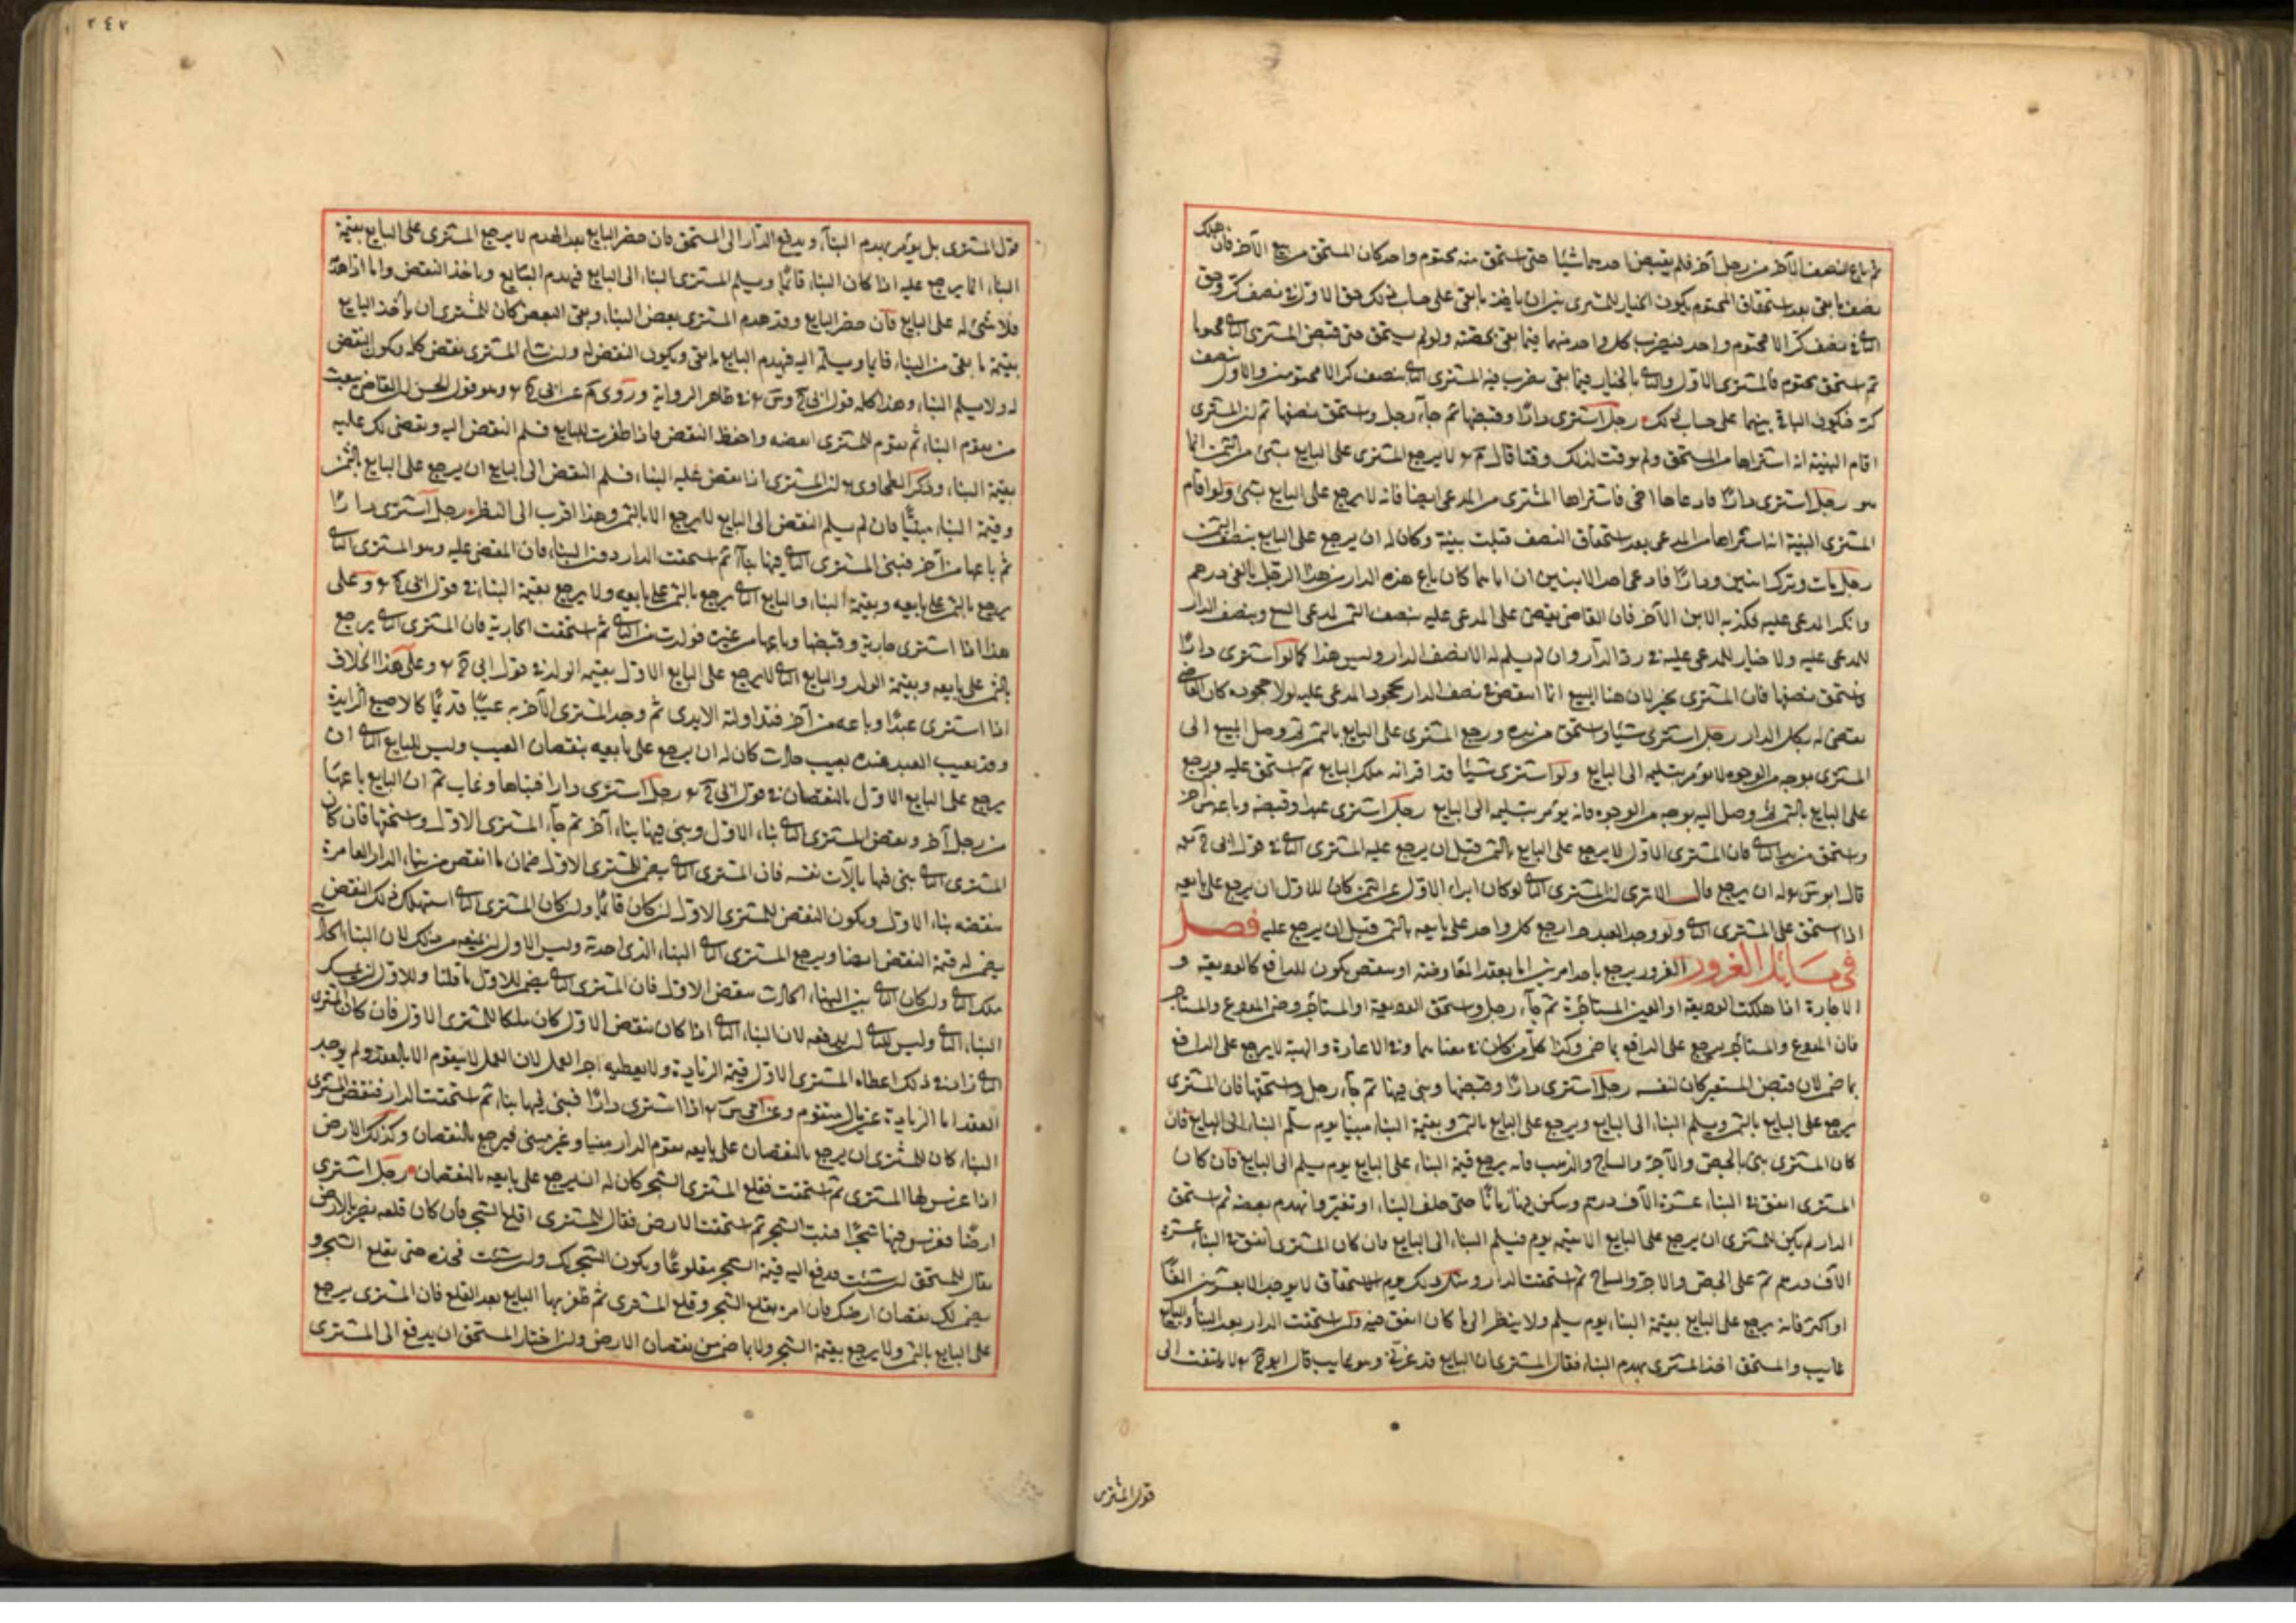 ثم باع النصف الآخر من رجل آخر فلم يقبض احدهما شيئا حتى استحق منه مختوم واحد كان المستحق من بيع الآخر فان هلك
نصف ما بقى بعد استحقاق المختوم يكون الخيار للمشترى بين ان ياخذ ما بقى على حساب ذلك حق الاول فى نصف كر وحق
الثانى فى نصف كر الا مختوم واحد فيضرب كل واحد منهما فيما بقى بحصته ولو لم يستحق حتى قبض المشترى الثانى مختوما
ثم استحق مختوم فالمشترى الاول والثانى بالخيار فيما بقى يضرب فيه المشترى الثانى بنصف كر الا مختومين والاول بنصف
كر فيكون الباقى بينهما على حساب ذلك رجل استرى دارا وقبضها ثم جاء رجل واستحق نصفها ثم ان المشترى
اقام البينة انه اشتراها من المستحق ولم يوقت لذلك وقتا قال لا يرجع المشترى على البايع بشئ من الثمن انما
هو رجل اشترى دارا فادعاها آخر فاشتراها المشترى من المدعى ايضا فانه لا يرجع على البايع بشئ ولو اقام
المشترى البينة انه اشتراها من المدعى بعد استحقاق النصف قبلت بينة وكان له ان يرجع على البايع بنصف الثمن
رجل مات وترك ابنين ودارا فادعى احد الابنين ان اباهما كان باع هذه الدار من هذا الرجل بالفى درهم
وانكر المدعى عليه فكذبه الابن الآخر فان القاضى يقضى على المدعى عليه بنصف الثمن لمدعى البيع وبنصف الدار
للمدعى عليه ولا خيار للمدعى عليه فى رد الدار وان لم يسلم له الا نصف الدار وليس هذا كما لو اشترى دارا
فاستحق نصفها فان المشترى يخير لان هنا البيع انما انتقض فى نصف الدار بجحود المدعى عليه لولا جحوده كان القاضى
يقضى له بكل الدار رجل اشترى شيئا واستحق من يده ورجع المشترى على البايع بالثمن ثم وصل المبيع الى
المشترى بوجه من الوجوه لا يؤمر بتسليمه الى البايع ولو اشترى شيئا قد اقر انه ملك البايع ثم استحق عليه ورجع
على البايع بالثمن ثم وصل اليه بوجه من الوجوه فانه يؤمر بتسليمه الى البايع رجل اشترى عبدا وقبضه وباعه من آخر
واستحق من يد الثانى فان المشترى الاول لا يرجع على البايع بالثمن قبل ان يرجع عليه المشترى الثانى فى قول
قال ابو له ان يرجع قال الا ترى ان المشترى الثانى لو كان ابراء الاول عن الثمن كان للاول ان يرجع على بايعه
اذا استحق على المشترى الثانى ولو وجد العبد حرا رجع كل واحد على بايعه بالثمن قبل ان يرجع عليه فصل
فى مسائل الغرور الغرور يرجع باحد امرين اما بعقد المعاوضة او بقبض يكون للدافع كالوديعة و
الاجارة اذا هلكت الوديعة او العين المستاجرة ثم جاء رجل واستحق الوديعة او المستاجر وضمن المودع والمستاجر
فان المودع والمستاجر يرجع على الدافع بما ضمن وكذا كل من كان فى معناهما وفى الاعارة والهبة لا يرجع على الدافع
بما ضمن لان قبض المستعير كان لنفسه رجل اشترى دارا وقبضها وبنى فيها ثم جاء رجل واستحقها فان المشترى
يرجع على البايع بالثمن ويسلم البناء الى البايع ويرجع على البايع بالثمن وبقيمة البناء مبنيا يوم سلم البناء الى البايع فان
كان المشترى بنى بالجص والآجر والساج والذهب فانه يرجع قيمة البناء على البايع يوم يسلم الى البايع فان كان
المشترى انفق فى البناء عشرة آلاف درهم وسكن فيها زمانا حتى خلق البناء او تغير وانهدم بعضه ثم استحق
الدار لم يكن للمشترى ان يرجع على البايع الا بقيمته يوم فيسلم البناء الى البايع فان كان المشترى انفق فى البناء عشرة
الآف درهم ثم على الجص والاجر والساج ثم استحقت الدار ومثل ذلك يوم الاستحقاق لا يوجد الا بعشرين الفا
او اكثر فانه يرجع على البايع بقيمة البناء يوم يسلم ولا ينظر الى ما كان انفق فيه ولو استحقت الدار بعد البناء والبايع
غايب والمستحق اخذ المشترى بهدم البناء فقال المشترى ان البايع قد غرنى وهو غايب قال ابو لا يلتفت الى
قول المشترى
٢٤٧
قول المشترى بل يؤمر بهدم البناء ويدفع الدار الى المستحق فان حضر البايع بعد الهدم لا يرجع المشترى على البايع بقيمة
البناء انما يرجع عليه اذا كان البناء قائما ويسلم المشترى البناء الى البايع فيهدم البايع وياخذ النقض واما اذا هدم
فلا شئ له على البايع فان حضر البايع وقد هدم المشترى بعض البناء وبقى البعض كان للمشترى ان يأخذ البايع
بقيمة ما بقى من البناء قايما ويسلمه اليه فيهدم البايع ما بقى ويكون النقض له وان شاء المشترى نقض كله ويكون النقض
له ولا يسلم البناء وهذا كله قول فى ظاهر الرواية وروى عن وهو قول الحسن ان القاضى يبعث
من يقوم البناء ثم يقوم للمشترى انقضه واحفظ النقض فاذا ظفرت بالبايع فسلم النقض اليه ويقضى لك عليه
بقيمة البناء وذكر الطحاوى ان المشترى اذا نقض عليه البناء فسلم النقض الى البايع ان يرجع على البايع بالثمن
وقيمة البناء مبنيا فان لم يسلم النقض الى البايع لا يرجع الا بالثمن وهذا اقرب الى النظر رجل اشترى دارا
ثم باعها من آخر فبنى المشترى الثانى فيها بناء ثم استحقت الدار دون البناء فان المقضى عليه وهو المشترى الثانى
يرجع بالثمن على بايعه وبقيمة البناء والبايع الثانى يرجع بالثمن على بايعه ولا يرجع بقيمة البناء فى قول وعلى
هذا اذا اشترى جارية وقبضها وباعها من غيره فولدت من الثانى ثم استحقت الجارية فان المشترى الثانى يرجع
بالثمن على بايعه وبقيمة الولد والبايع الثانى لا يرجع على البايع الاول بقيمة الولد فى قول وعلى هذا الخلاف
اذا اشترى عبدا وباعه من آخر فتداولته الايدى ثم وجد المشترى الآخر به عيبا قديما كالاصبع الزايدة
وقد تعيب العبد عنده بعيب حادث كان له ان يرجع على بايعه بنقصان العيب وليس للبايع الثانى ان
يرجع على البايع الاول بالنقصان فى قول رجل اشترى دارا فبناها وغاب ثم ان البايع باعها
من رجل آخر ونقض المشترى الثانى بناء الاول وبنى فيها بناء آخر ثم جاء المشترى الاول واستحقها فان كان
المشترى الثانى بنى فيها بآلات نفسه فان المشترى الثانى يضمن للمشترى الاول ضمان ما انتقص من بناء الدار العامرة
بنقضه بناء الاول ويكون النقض للمشترى الاول ان كان قائما وان كان المشترى الثانى استهلك ذلك النقض
يضمن له قيمة النقض ايضا ويرجع المشترى الثانى البناء الذى احدثه وليس للاول ان يمنعه من ذلك لان البناء الحادث
ملك الثانى وان كان الثانى بنى البناء الحادث بنقض الاول فان المشترى الثانى يضمن للاول ما قلنا وللاول ان يمسك
البناء الثانى وليس للثانى ان يرفعه لان البناء الثانى اذا كان بنقض الاول كان ملكا للمشترى الاول فان كان المشترى
الثانى زاد فى ذلك اعطاه المشترى الاول قيمة الزيادة ولا يعطيه اجر العمل لان العمل لا يتقوم الا بالعقد ولم يوجد
العقد اما الزيادة عين مال متقوم وعن اذا اشترى دارا فبنى فيها بناء ثم استحقت الدار فنقض المشترى
البناء كان للمشترى ان يرجع بالنقصان على بايعه يقوم الدار مبنيا وغير مبنى فيرجع بالنقصان وكذلك الارض
اذا غرس لها المشترى ثم استحقت فقلع المشترى الشجر كان له ان يرجع على بايعه بالنقصان رجل اشترى
ارضا فغرس فيها شجرا فنبت الشجر ثم استحقت الارض فقال للمشترى اقلع الشجر فان كان قلعه يضر بالارض
يقال للمستحق ان شئت تدفع اليه قيمة الشجر مقلوعا ويكون الشجر لك وان شئت فمره حتى يقلع الشجر و
يضمن لك نقصان ارضك فان امره بقلع الشجر وقلع المشترى ثم ظفر بها البايع بعد القلع فان المشترى يرجع
على البايع بالثمن ولا يرجع بقيمة الشجر ولا بما ضمن من نقصان الارض وان اختار المستحق ان يدفع الى المشترى